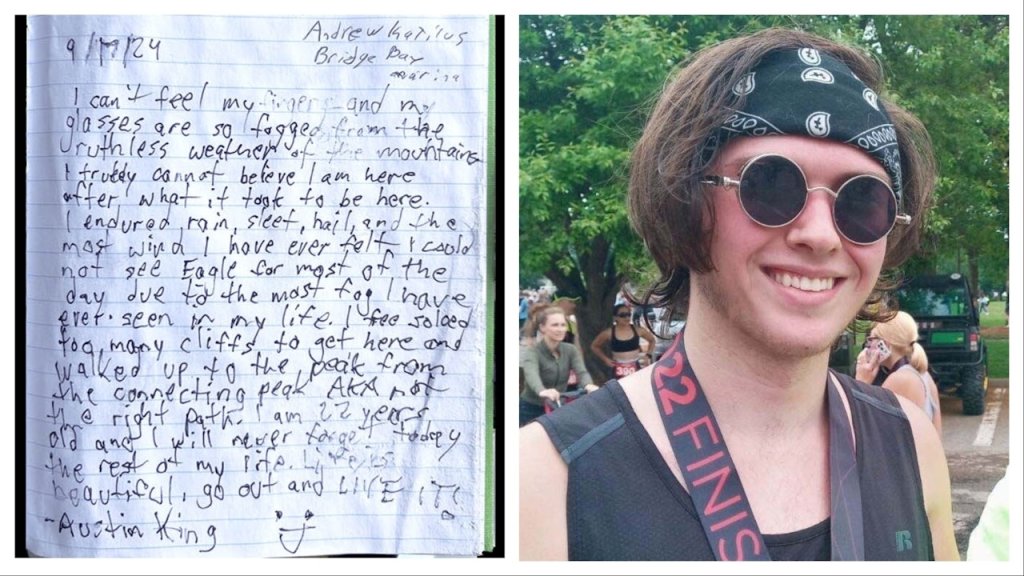 9/17/24
Andrew
Bridge Bay
marina
I can't feel my fingers and my
glasses are so fogged from the
ruthless weather of the mountains
I truddy cannot believe I am here
after what it took to be here.
I endured rain, sleet, hail, and the
most wind I have ever felt I could
not see Eagle for most of the
day due to the most fog I have
ever seen in my life. I free soloed
too many cliffs to get here and
walked up to the peak from
the connecting peak AKA not
the right path. I am 22 years
old and I will never forget today
the rest of my life. Life is
beautiful, go out and LIVE IT!
-Austin King
22 FINIS
R